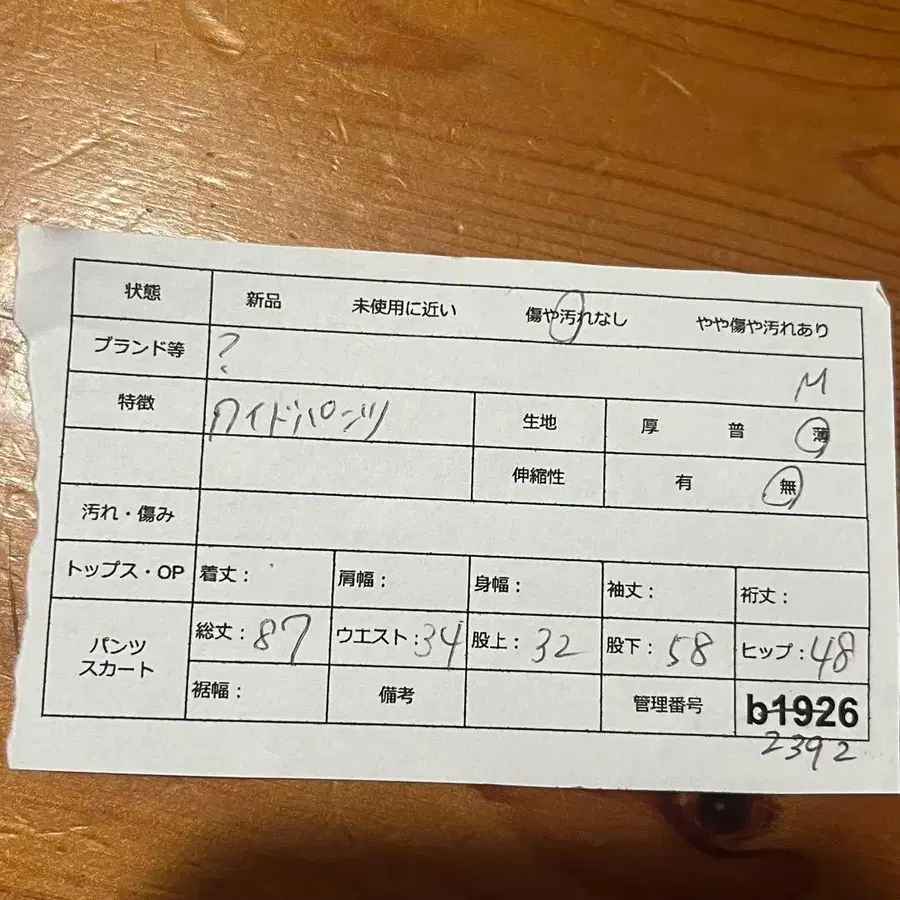 状態 新品 未使用に近い 傷や汚れなし やや傷や汚れあり
ブランド等 ? M
特徴 ワイドパンツ 生地 厚 普 薄
伸縮性 有 無
汚れ・傷み
トップス・OP 着丈： 肩幅： 身幅： 袖丈： 裄丈：
パンツ スカート 総丈：87 ウエスト：34 股上：32 股下：58 ヒップ：48
裾幅： 備考 管理番号 b1926
2392